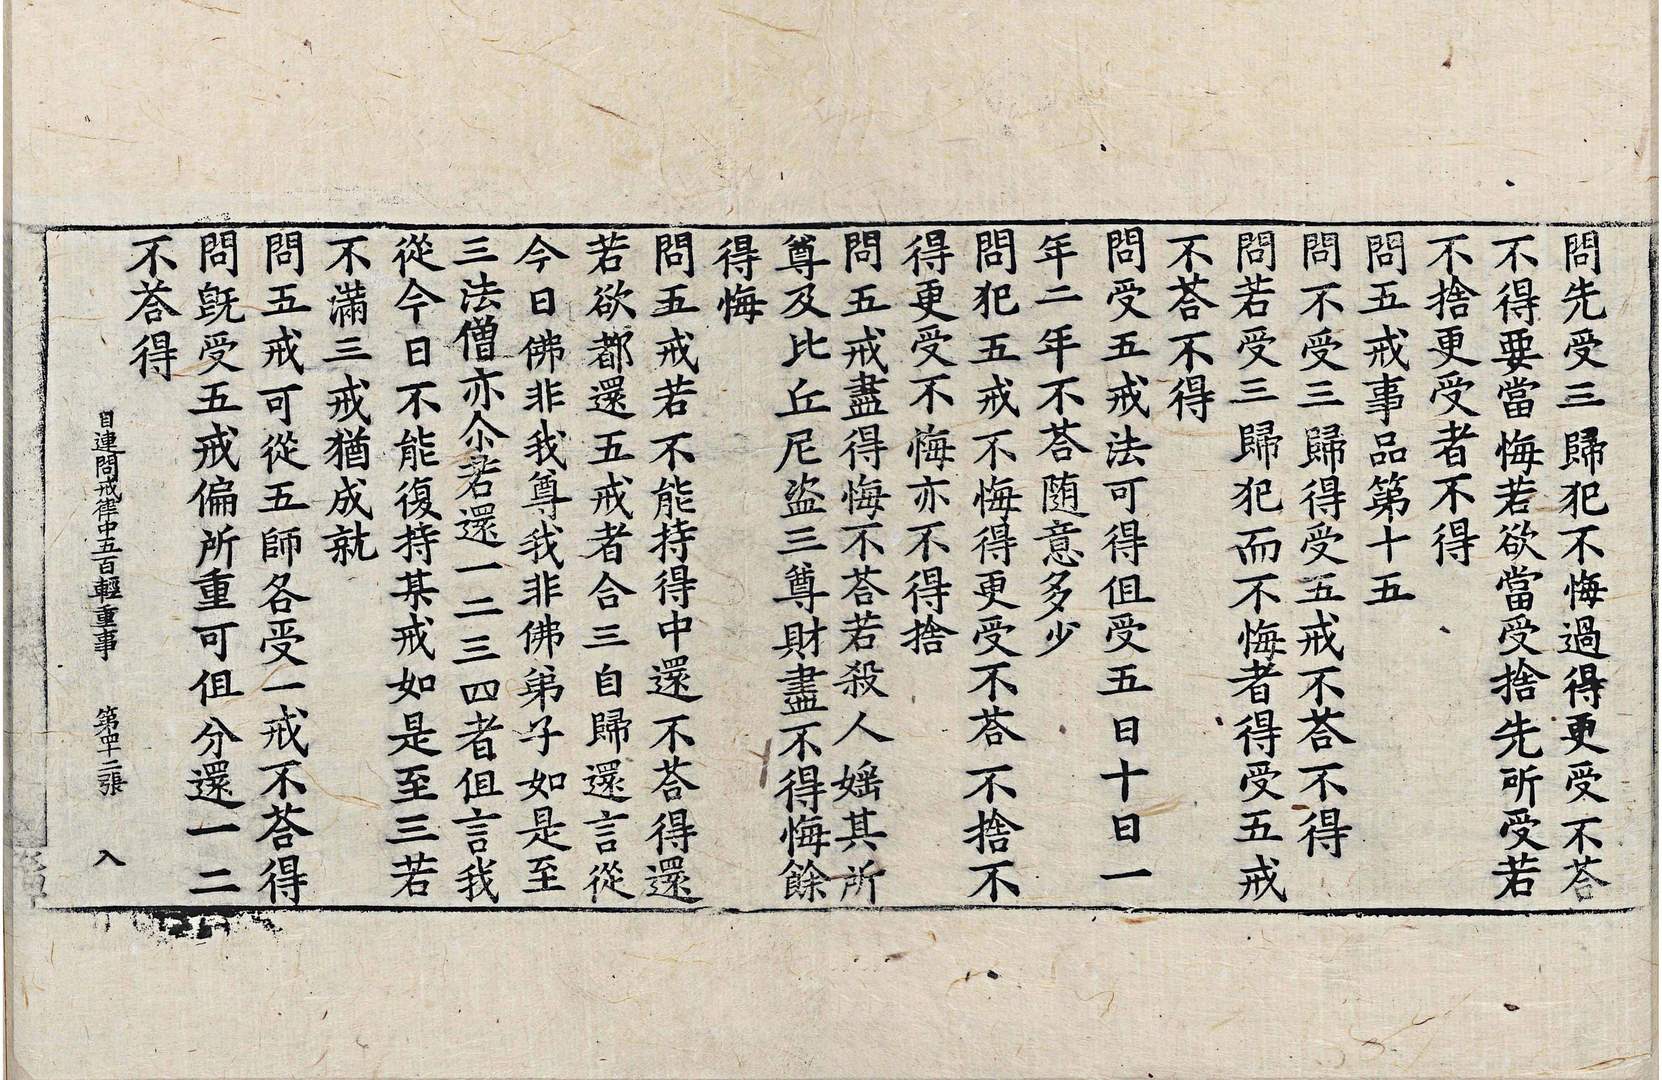 問先受三歸犯不悔過得更受不荅
不得要當悔若欲當受捨先所受若
不捨更受者不得
問五戒事品第十五
問不受三歸得受五戒不荅不得
問若受三歸犯而不悔者得受五戒
不荅不得
問受五戒法可得但受五日十日一
年二年不荅隨意多少
問犯五戒不悔得更受不荅不捨不
得更受不悔亦不得捨
問五戒盡得悔不荅若殺人婬其所
尊及比丘尼盜三尊財盡不得悔餘
得悔
問五戒若不能持得中還不荅得還
若欲都還五戒者合三自歸還言從
今日佛非我尊我非佛弟子如是至
三法僧亦尒若還一二三四者但言我
從今日不能復持某戒如是至三若
不滿三戒猶成就
問五戒可從五師各受一戒不荅得
問旣受五戒偏所重可但分還一二
不荅得
目連問戒律中五百輕重事 第四十二張 入